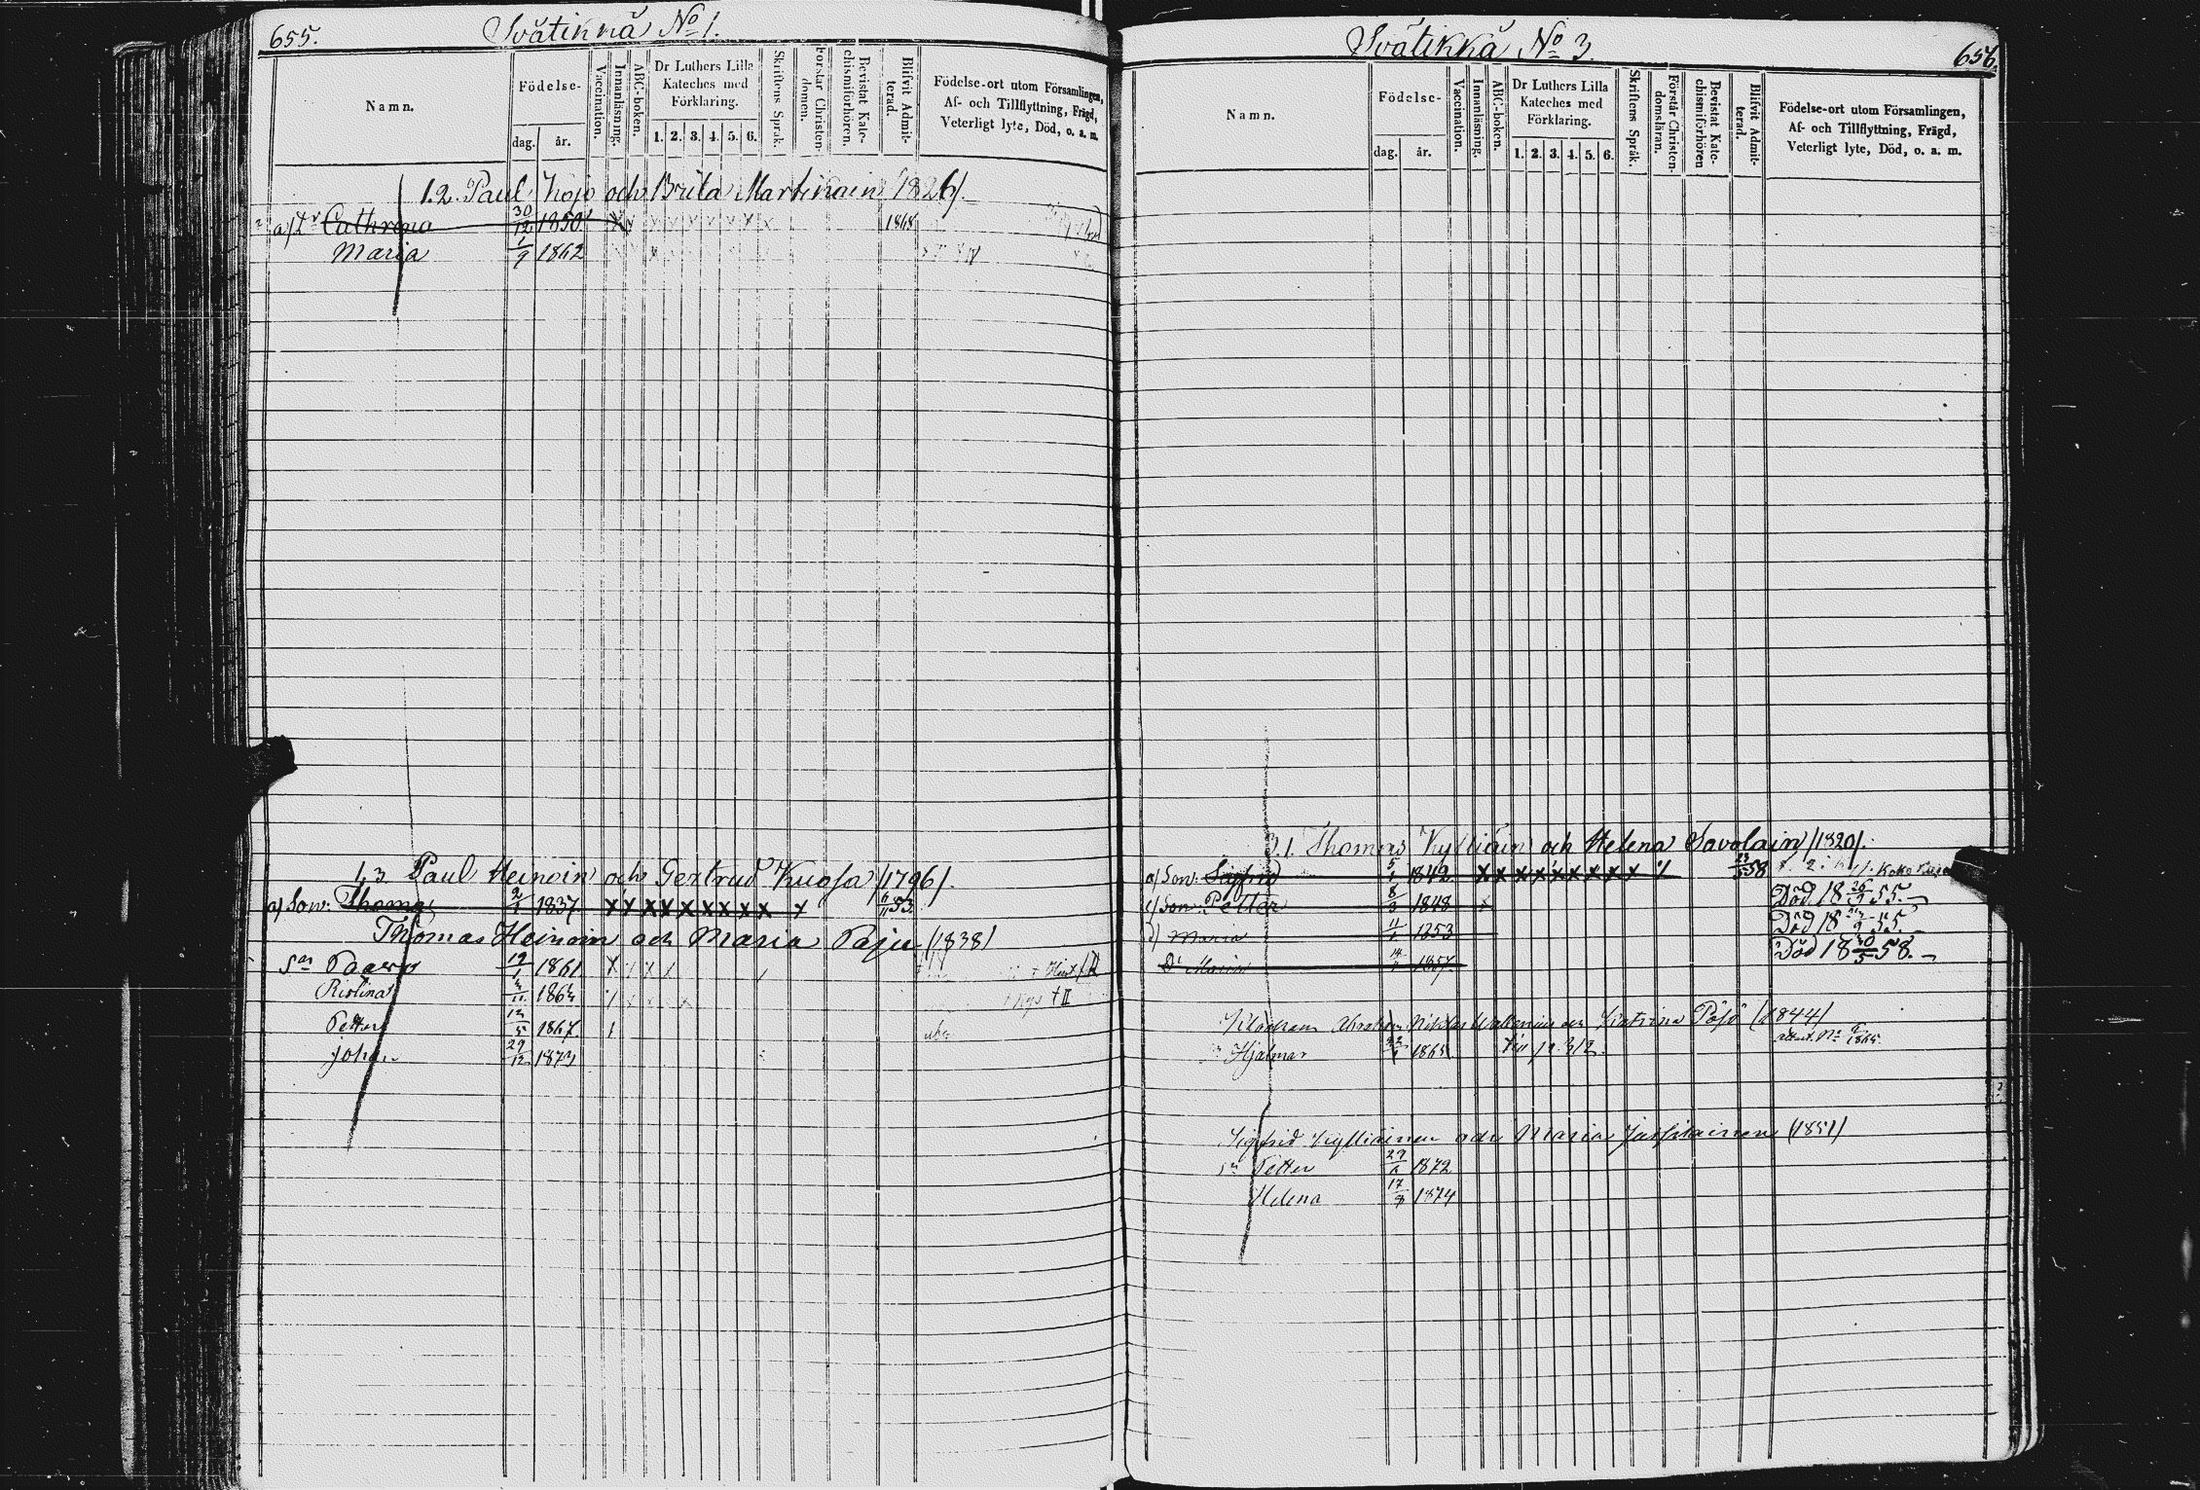 655. Svätikkä No 1.
Namn.
Födelse-
dag. år.
Vaccination.
Innanläsning.
ABC-boken.
Dr Luthers Lilla Kateches med Förklaring.
1. 2. 3. 4. 5. 6.
Skriftens Språk.
Förstår Christen-domen.
Bevistat Kate-chismiförhören.
Blifvit Admit-terad.
Födelse-ort utom Församlingen,
Af- och Tillflyttning, Frägd,
Veterligt lyte, Död, o. a. m.
1.2. Paul Kojo och Brita Martikain /1826/.
a/ Dr Cathrina 30/12 1850 x x x x x x x x 1868
Maria 1/9 1862
1.3. Paul Heinoin och Gertrud Kuosa /1796/.
a/ Son. Thomas 2/1 1837 x x x x x x x x x x 6/11 53.
Thomas Heinoin och Maria Paju (1838)
Sn Paavo 19/1 1861 x
Ristina 4/11 1864
Petter 13/5 1867.
Johan 29/12 1873
Svätikkä No 3. 656.
Namn.
Födelse-
dag. år.
Vaccination.
Innanläsning.
ABC-boken.
Dr Luthers Lilla Kateches med Förklaring.
1. 2. 3. 4. 5. 6.
Skriftens Språk.
Förstår Christen-domsläran.
Bevistat Kate-chismiförhören
Blifvit Admit-terad.
Födelse-ort utom Församlingen,
Af- och Tillflyttning, Frägd,
Veterligt lyte, Död, o. a. m.
3.1. Thomas Kylliäin och Helena Savolain /1820/.
a/ Son. Sigfrid 5/1 1842 x x x x x x x x x 58
c/ Son. Petter 8/3 1848 Död 18 26/9 55.
d/ Maria 1853 Död 18 55.
Dr Maria 14 1857. Död 18 30/5 58.
Klockaren Abraham Niklas Wallenius och Katrina Pöjö (1844)
Hjalmar 1865 1865.
Sigfrid Kylliäinen och Maria (1851)
sn Petter 29/6 1872
Helena 17/8 1874